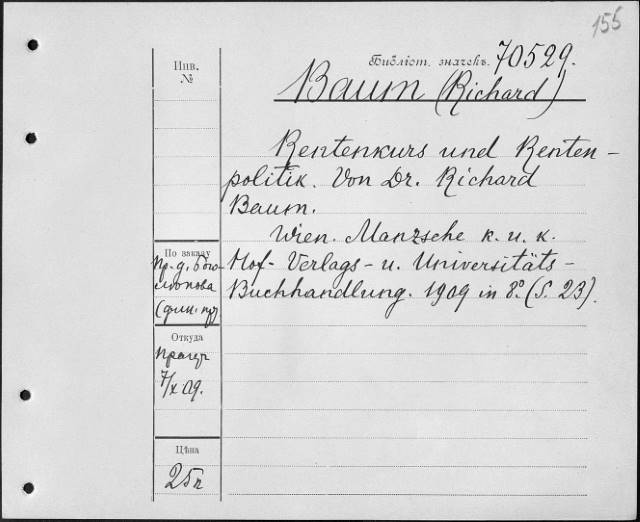 155
Библіот. значекъ. 70529.
Инв.
№
Baum (Richard)
Rentenkurs und Renten-
politik. Von Dr. Richard
Baum.
Wien. Manzsche k. u. k.
Hof- Verlags- u. Universitäts-
Buchhandlung. 1909 in 8º. (S. 23).
По заказу
Пр. д. Бого-
лѣпова
Откуда
7/X 09.
Цѣна
25